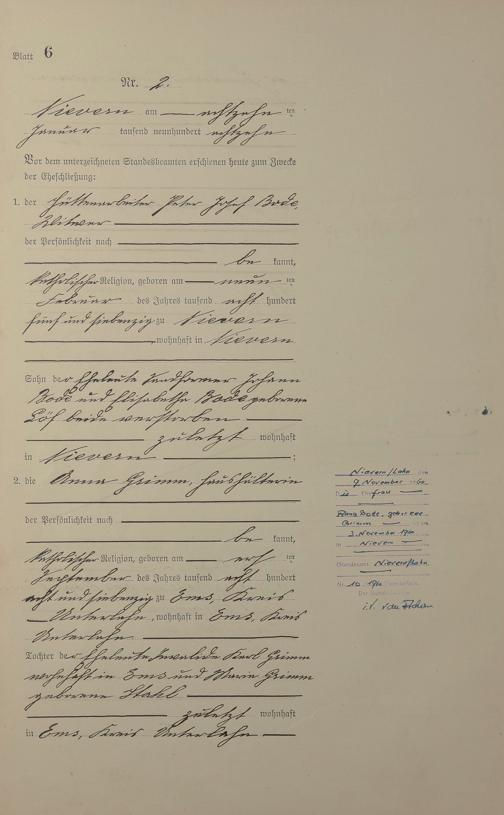 Blatt 6
Nr. 2.
Nievern am achtzehn ten
Januar tausend neunhundert achtzehn
Vor dem unterzeichneten Standesbeamten erschienen heute zum Zwecke
der Eheschließung:
1. der Hüttenarbeiter Peter Josef Bode,
Witwer
der Persönlichkeit nach
be kannt,
katholischer Religion, geboren am neun ten
Februar des Jahres tausend acht hundert
fünf und siebenzig zu Nievern
, wohnhaft in Nievern
Sohn der Eheleute Sandformer Johann
Bode und Elisabetha Bode geborene
Löf beide verstorben
zuletzt wohnhaft
in Nievern ;
2. die Anna Grimm, Haushälterin
der Persönlichkeit nach
be kannt,
katholischer Religion, geboren am elf ten
September des Jahres tausend acht hundert
acht und siebenzig zu Ems, Kreis
Unterlahn, wohnhaft in Ems, Kreis
Unterlahn
Tochter der Eheleute Invalide Karl Grimm
wohnhaft in Ems und Maria Grimm
geborene Stahl
zuletzt wohnhaft
in Ems, Kreis Unterlahn
Nievern/Lahn
9. November
Die Ehefrau
Anna Bode, geborene
Grimm
3. November
in Nievern
Standesamt Nievern/Lahn
Nr. 10